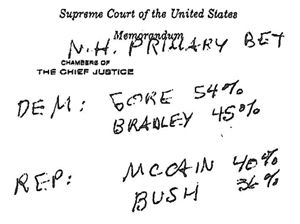 Supreme Court of the United States
Memorandum
N.H. PRIMARY BET
CHAMBERS OF
THE CHIEF JUSTICE
DEM: GORE 54%
BRADLEY 45%
REP: MCCAIN 40%
BUSH 36%